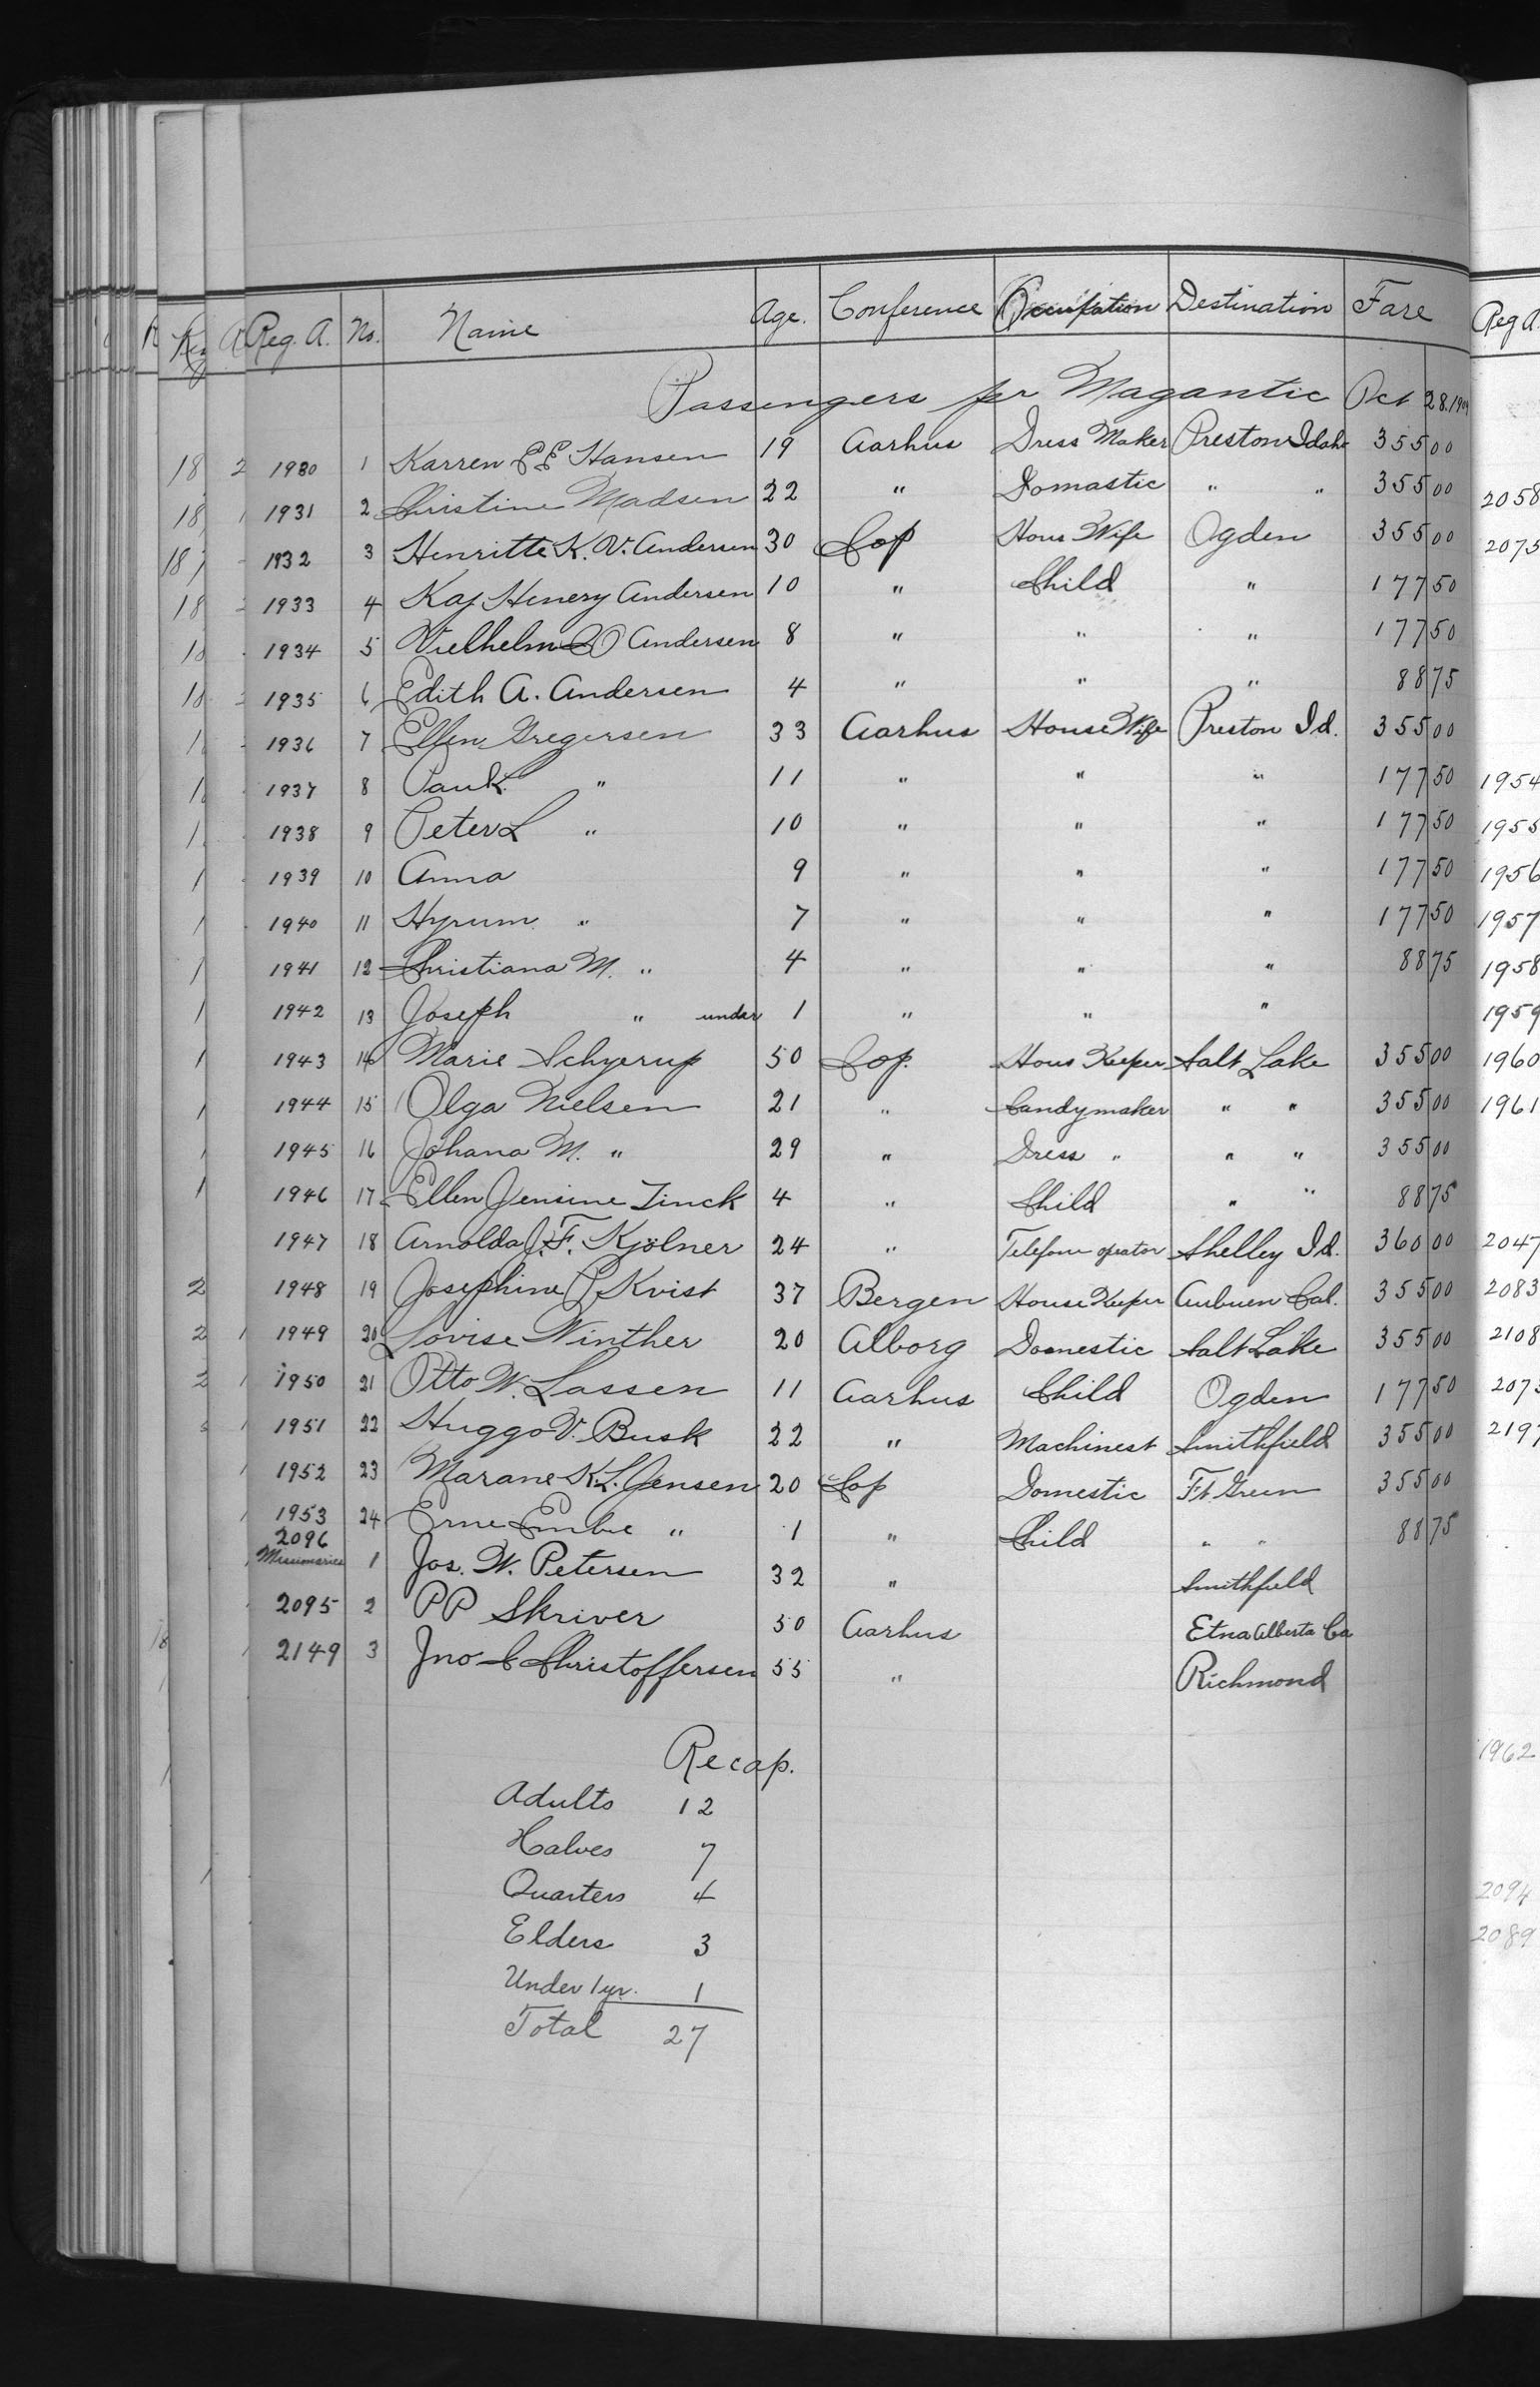 Reg. A. No. Name Age. Conference Occupation Destination Fare
Passengers per Magantic Oct 28. 1909
1930 1 Karren E E Hansen 19 Aarhus Dress Maker Preston Idaho 355 00
1931 2 Christine Madsen 22 " Domastic " " 355 00
1932 3 Henritte K. V. Andersen 30 Cop Hous Wife Ogden 355 00
1933 4 Kaj Henery Andersen 10 " Child " 177 50
1934 5 Vielhelm O Andersen 8 " " " 177 50
1935 6 Edith A. Andersen 4 " " " 88 75
1936 7 Ellen Gregersen 33 Aarhus House Wife Preston Id. 355 00
1937 8 Paul K. " 11 " " " 177 50
1938 9 Peter L " 10 " " " 177 50
1939 10 Anna 9 " " " 177 50
1940 11 Hyrum " 7 " " " 177 50
1941 12 Christiana M. " 4 " " " 88 75
1942 13 Joseph " under 1 " " "
1943 14 Marie Schyerup 50 Cop. Hous Keeper Salt Lake 355 00
1944 15 Olga Nielsen 21 " Candymaker " " 355 00
1945 16 Johana M. " 29 " Dress " " " 355 00
1946 17 Ellen Jensine Zinck 4 " Child " " 88 75
1947 18 Arnolda J. F. Kjölner 24 " Telefone opeator Shelley Id. 360 00
1948 19 Josephine P Kvist 37 Bergen House Keeper Auburn Cal. 355 00
1949 20 Lovise Winther 20 Alborg Domestic Salt Lake 355 00
1950 21 Otto W. Lassen 11 Aarhus Child Ogden 177 50
1951 22 Huggo V. Busk 22 " Machinest Smithfield 355 00
1952 23 Marane K. L. Jensen 20 Cop Domestic Ft Green 355 00
1953 24 Erne " 1 " Child " " 88 75
2096
Missionaries 1 Jos. W. Petersen 32 " Smithfield
2095 2 PP Skriver 50 Aarhus Etna Alberta Ca
2149 3 Jno C Christoffersen 55 " Richmond
Recap.
Adults 12
Halves 7
Quarters 4
Elders 3
Under 1 yr. 1
Total 27
Reg A.
2058
2075
1954
1955
1956
1957
1958
1959
1960
1961
2047
2083
2108
2073
2197
1962
2094
2089